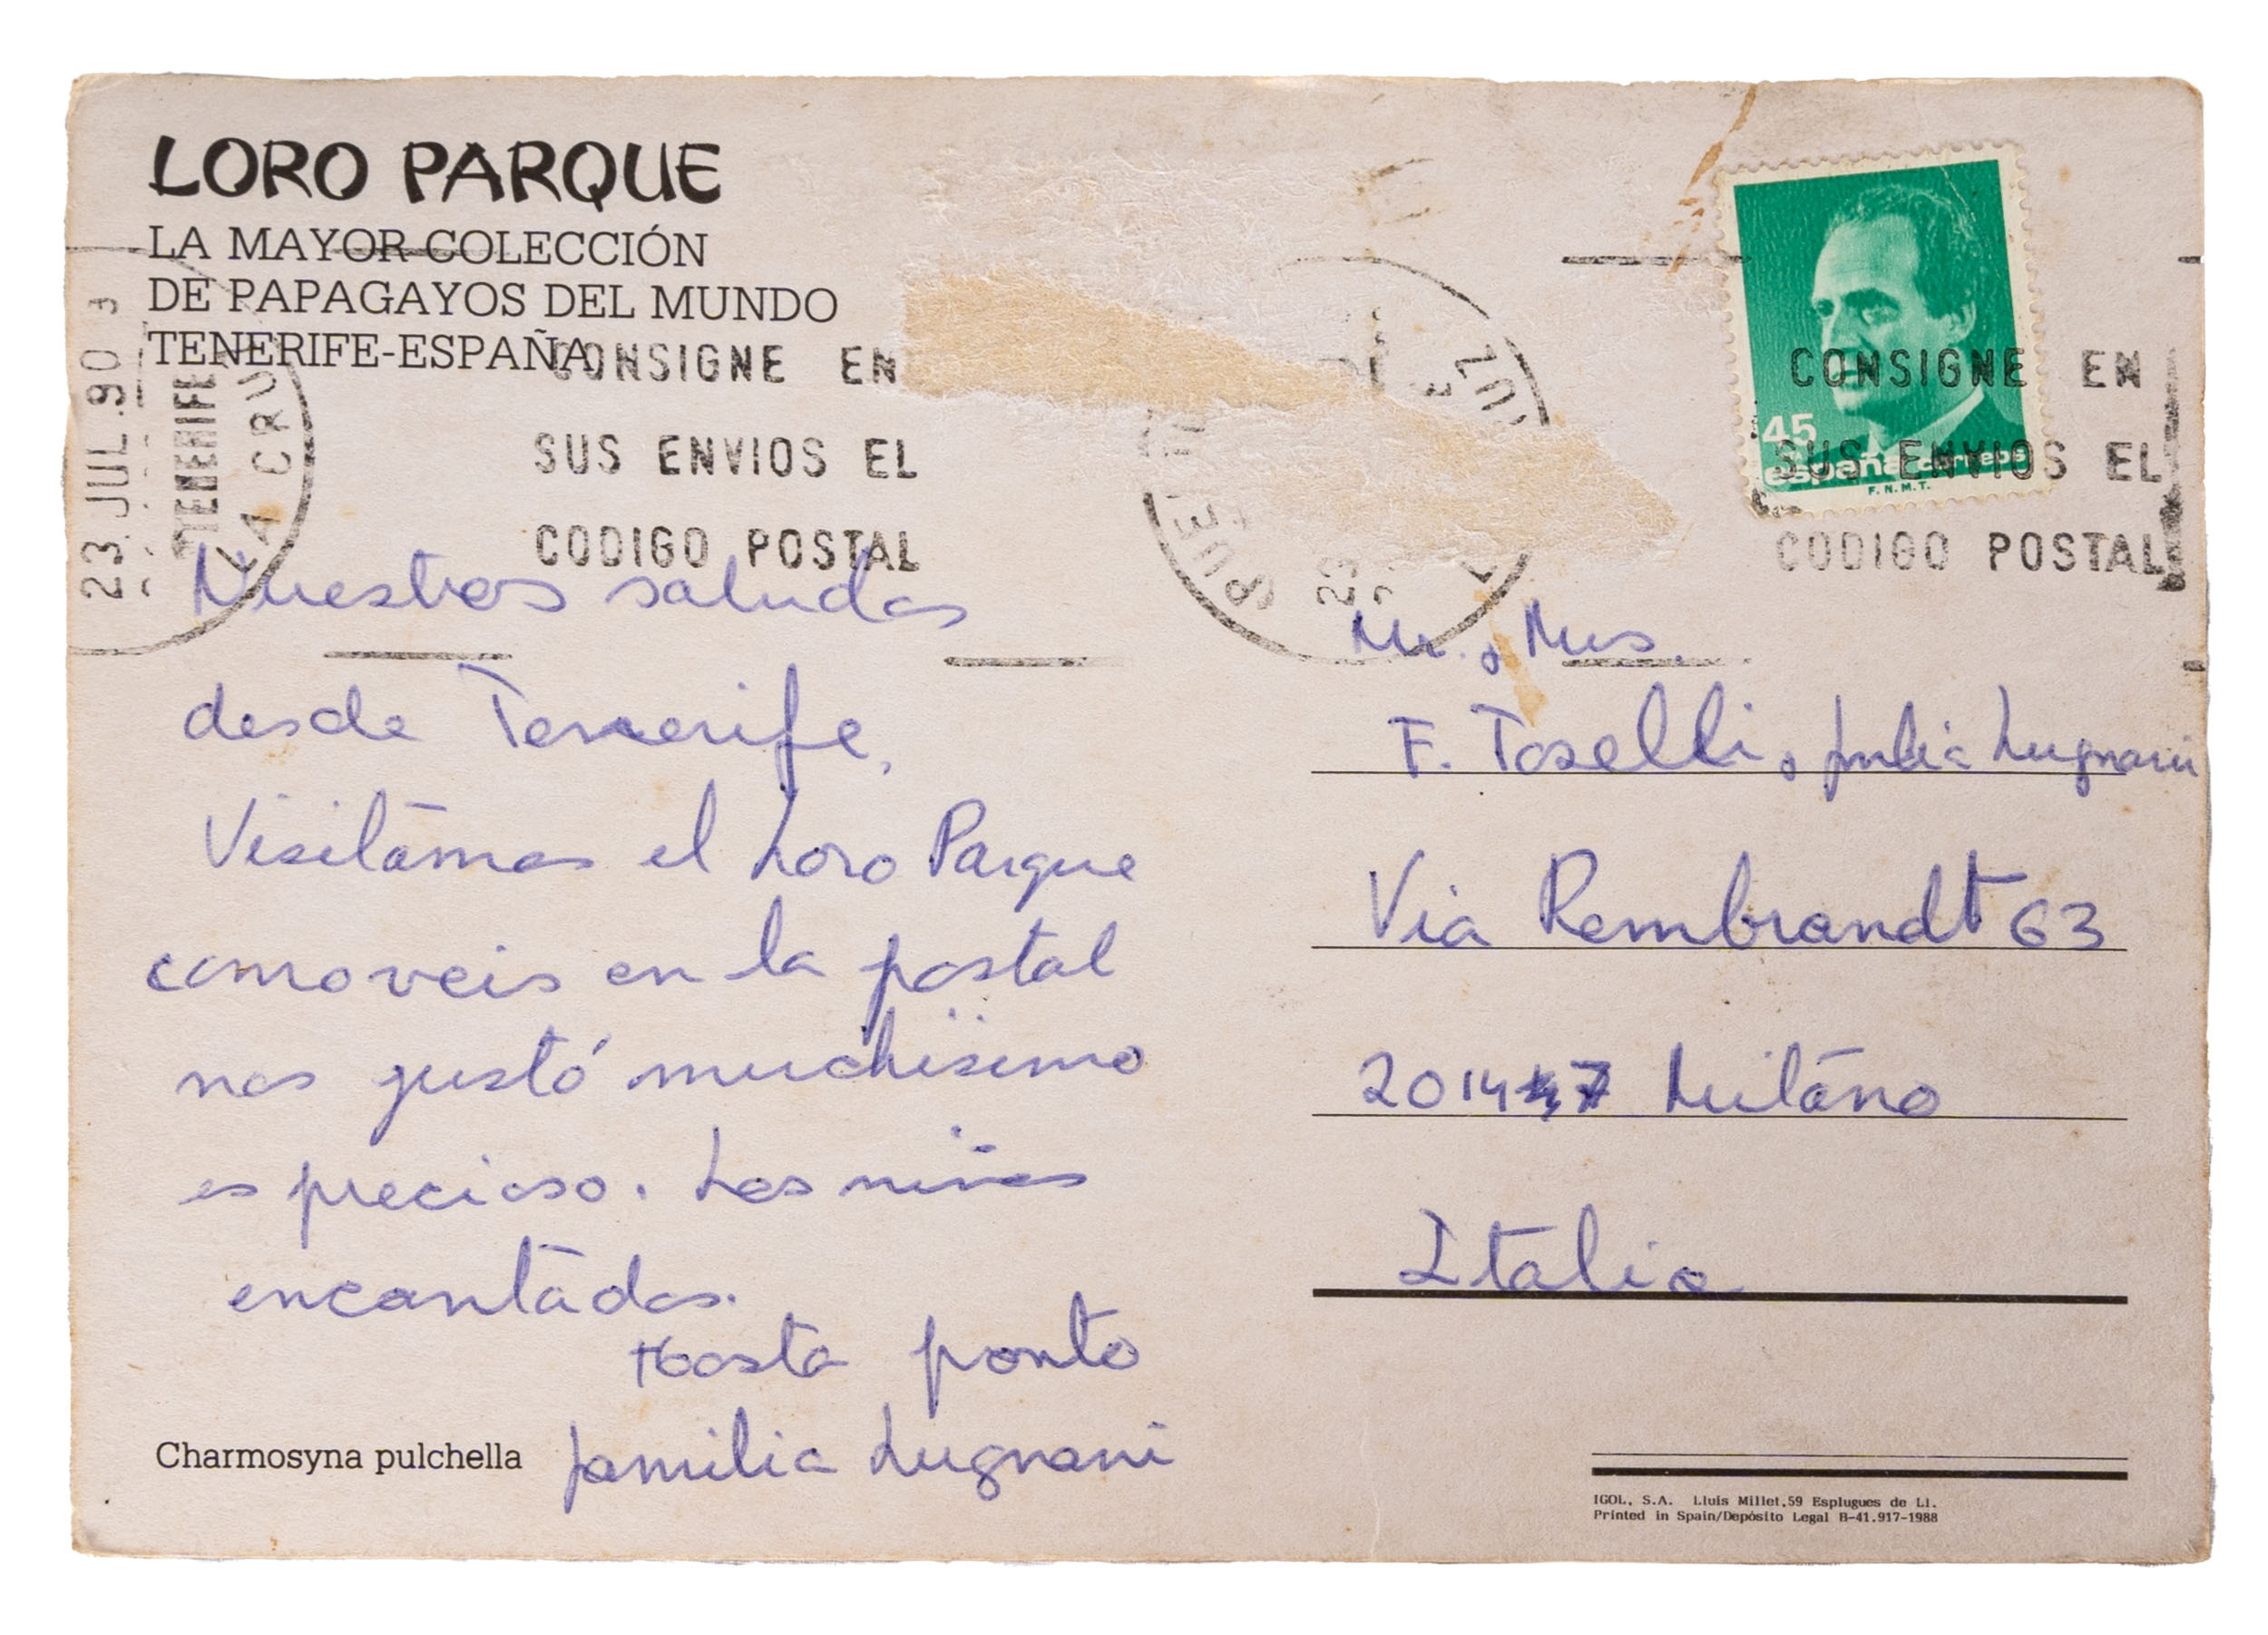 LORO PARQUE
LA MAYOR COLECCIÓN
DE PAPAGAYOS DEL MUNDO
TENERIFE-ESPAÑA
23 JUL.90
TENERIFE
LA CRU
CONSIGNE EN
SUS ENVIOS EL
CODIGO POSTAL
PUE
23
45
españa correos
F.N.M.T.
CONSIGNE EN
SUS ENVIOS EL
CODIGO POSTAL
Nuestros saludos
desde Tenerife,
Visitamos el Loro Parque
como veis en la postal
nos gustó muchisimo
es precioso. Los niños
encantados.
Hasta ponto
familia Lugnani
Charmosyna pulchella
Mr. y Mrs.
F. Toselli y Julia Lugnani
Via Rembrandt 63
20147 Milano
Italia
IGOL, S.A. Lluis Millet,59 Esplugues de Ll.
Printed in Spain/Depósito Legal B-41.917-1988